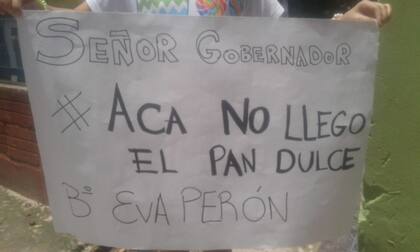 SEÑOR GOBERNADOR
# ACA NO LLEGO
EL PAN DULCE
Bº EVA PERÓN